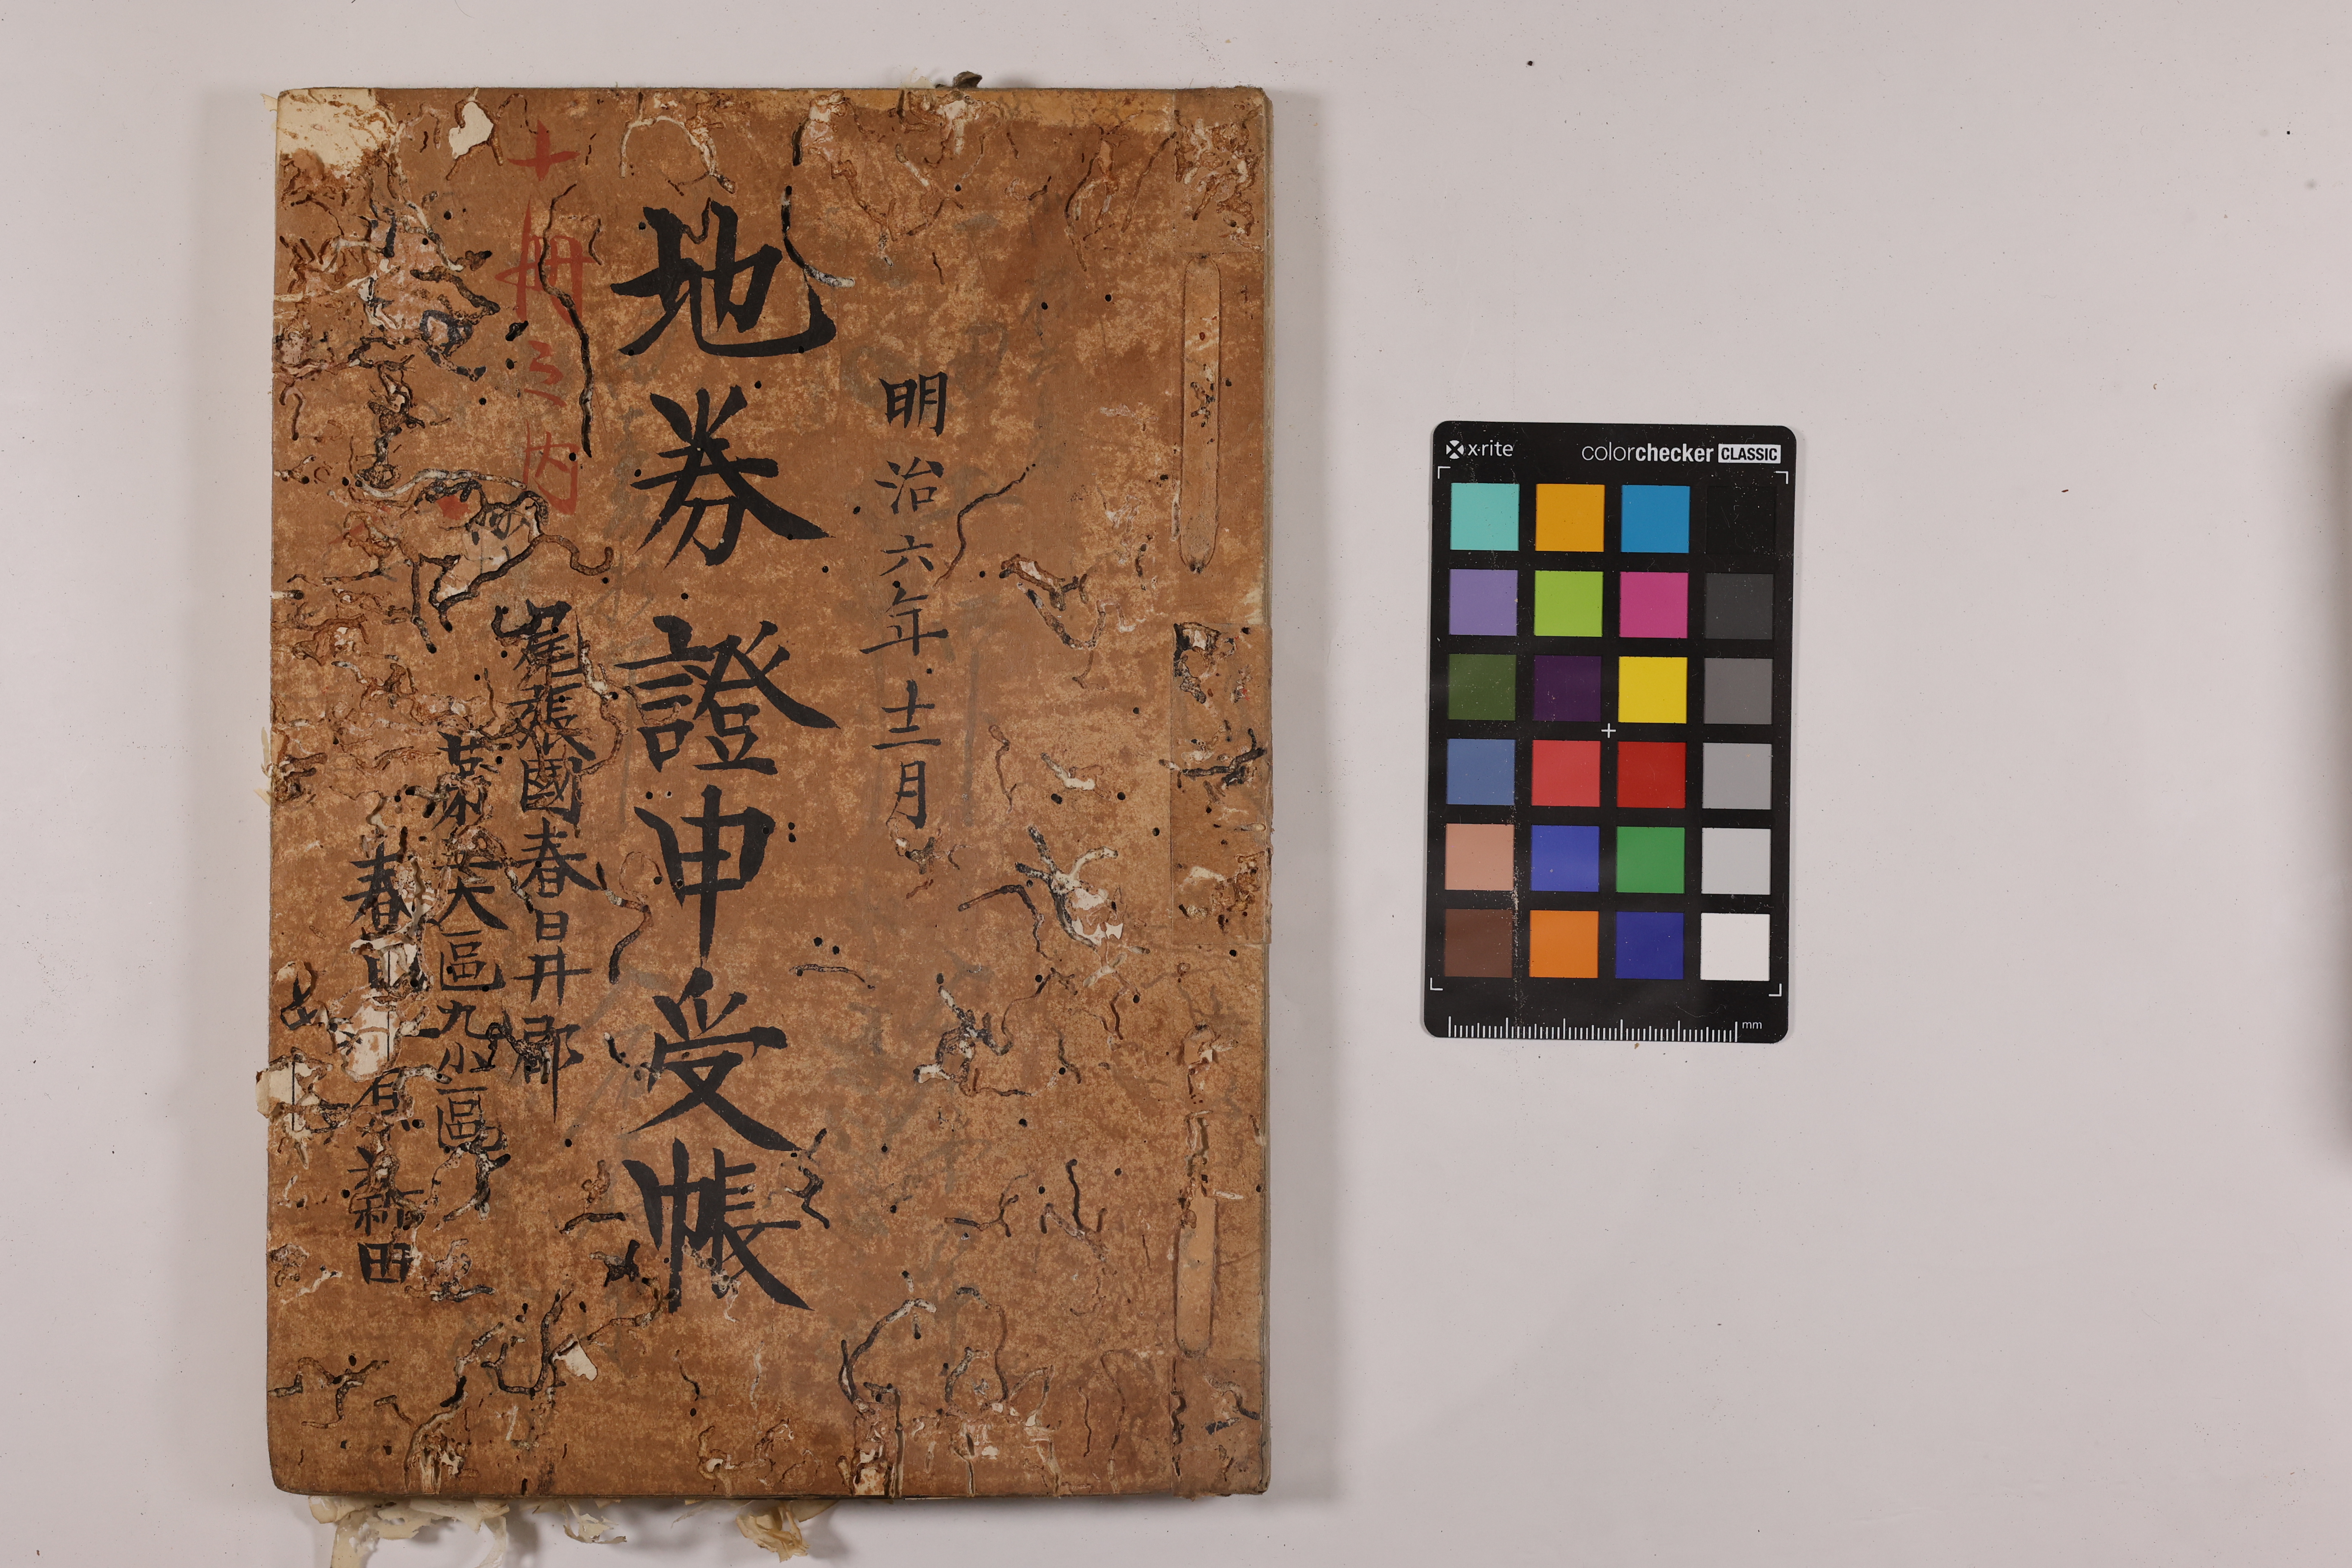 明治六年十二月
地券證申受帳
十冊之内
尾張國春日井郡
第 大區九小區
春日 原新田
x·rite colorchecker CLASSIC
mm